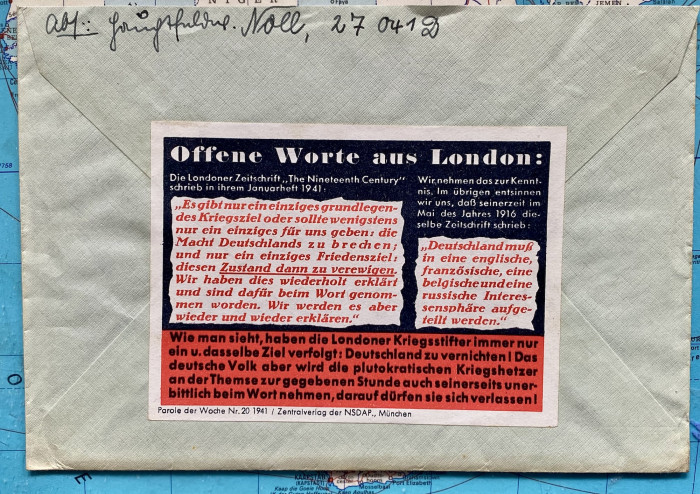 Abs.: Hauptfeldw. Noll, 27 041 D
Offene Worte aus London:
Die Londoner Zeitschrift „The Nineteenth Century"
schrieb in ihrem Januarheft 1941:
„Es gibt nur ein einziges grundlegen-
des Kriegsziel oder sollte wenigstens
nur ein einziges für uns geben: die
Macht Deutschlands zu brechen;
und nur ein einziges Friedensziel:
diesen Zustand dann zu verewigen.
Wir haben dies wiederholt erklärt
und sind dafür beim Wort genom-
men worden. Wir werden es aber
wieder und wieder erklären."
Wir nehmen das zur Kennt-
nis. Im übrigen entsinnen
wir uns, daß seinerzeit im
Mai des Jahres 1916 die-
selbe Zeitschrift schrieb:
„Deutschland muß
in eine englische,
französische, eine
belgische und eine
russische Interes-
sensphäre aufge-
teilt werden."
Wie man sieht, haben die Londoner Kriegsstifter immer nur
ein u. dasselbe Ziel verfolgt: Deutschland zu vernichten! Das
deutsche Volk aber wird die plutokratischen Kriegshetzer
an der Themse zur gegebenen Stunde auch seinerseits uner-
bittlich beim Wort nehmen, darauf dürfen sie sich verlassen!
Parole der Woche Nr. 20 1941 / Zentralverlag der NSDAP., München
JEMEN
(KAPSTADT)
Mosselbaai
Port Elizabeth
Kaap die Goeie Hoop